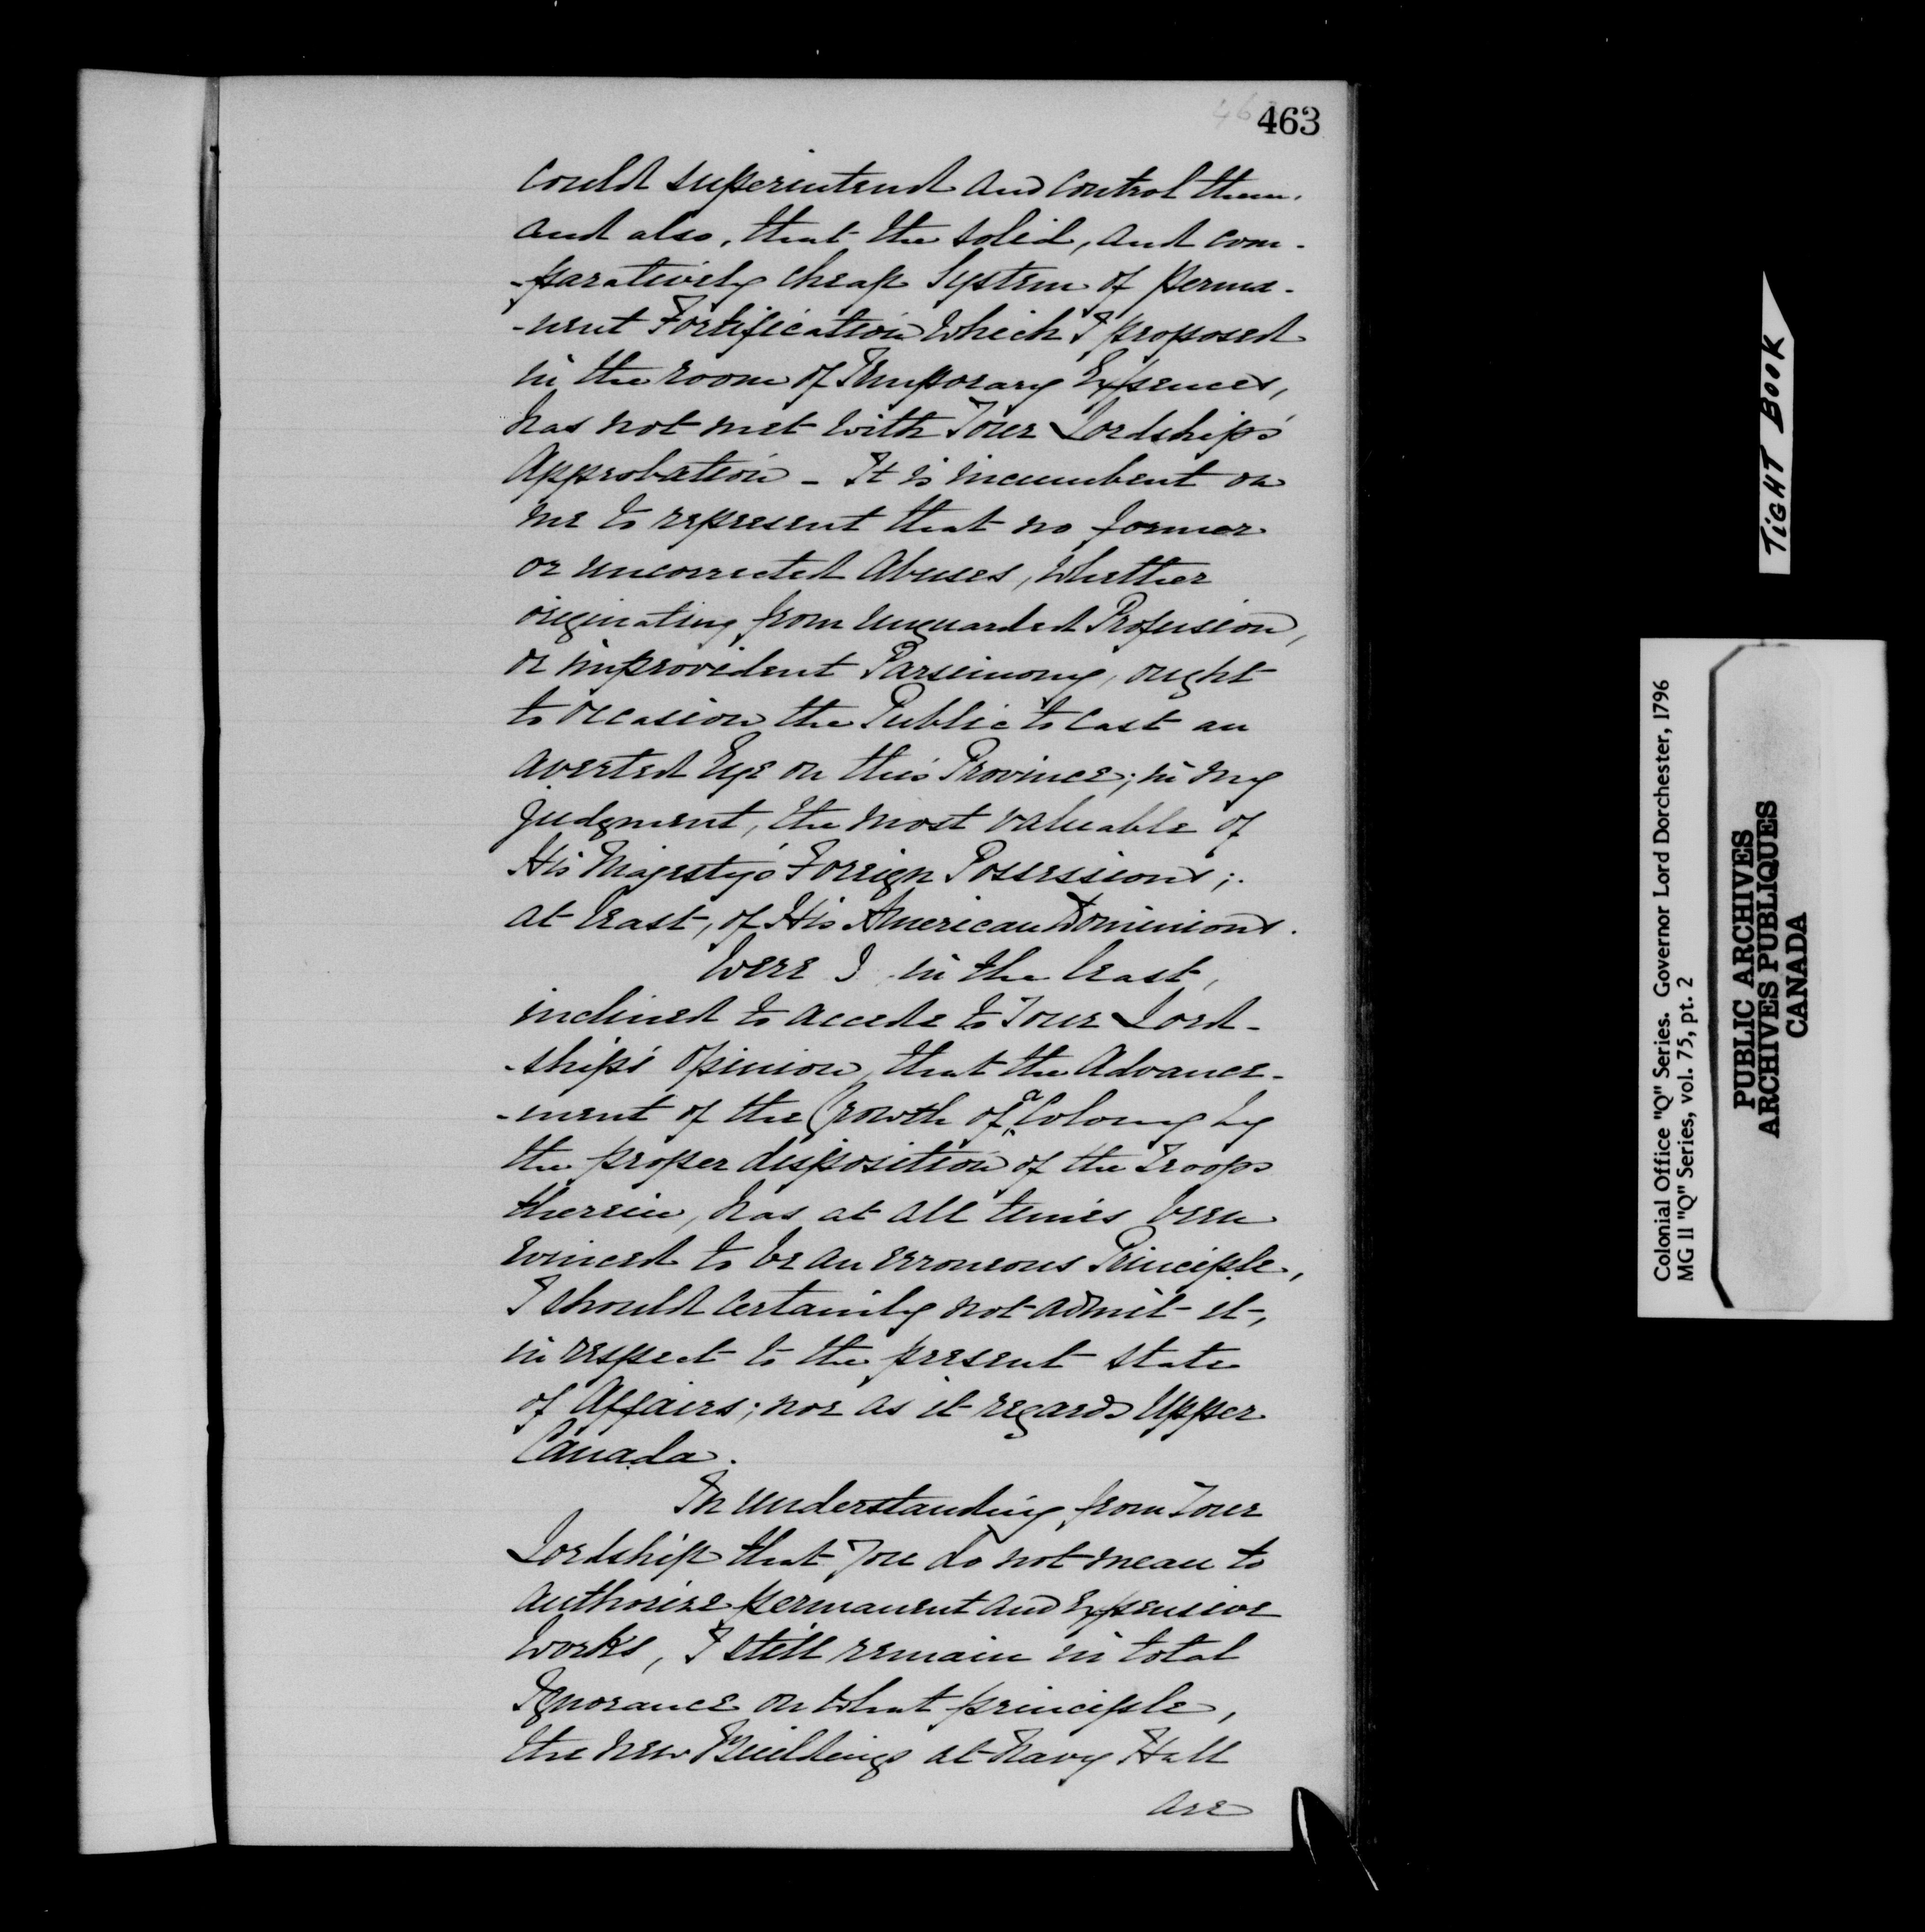 463
could superintend and control them.
and also, that the solid, and com-
-paratively cheap System of perma-
-nent Fortification which I proposed
in the room of Temporary Expences,
has not met with Your Lordship's
Approbation - It is incumbent on
me to represent that no former
or uncorrected Abuses, whether
originating from unguarded Profusion,
or improvident Parsimony, ought
to occasion the Public to cast an
averted Eye on this Province; in my
judgment, the most valuable of
His Majesty's Foreign Possessions;.
at least, of His American Dominions.
Were I in the least,
inclined to accede to Your Lord-
-ship's Opinion, that the Advance-
-ment of the Growth of a Colony by
the proper disposition of the Troops
therein, has at all times been
evinced to be an erroneous Principle,
I should certainly not admit it,
in respect to the present state
of Affairs; nor as it regards Upper
Canada.
In understanding from Your
Lordship that You do not mean to
authorize permanent and expensive
works, I still remain in total
Ignorance on what principle,
the new Buildings at Navy Hall
are
TIGHT BOOK
Colonial Office "Q" Series. Governor Lord Dorchester, 1796
MG 11 "Q" Series, vol. 75, pt. 2
PUBLIC ARCHIVES
ARCHIVES PUBLIQUES
CANADA